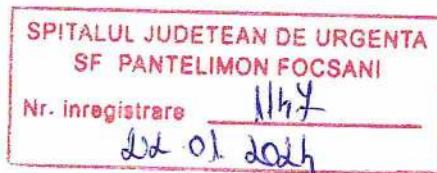 SPITALUL JUDETEAN DE URGENTA
SF PANTELIMON FOCSANI
Nr. inregistrare 1147
22 01 2024